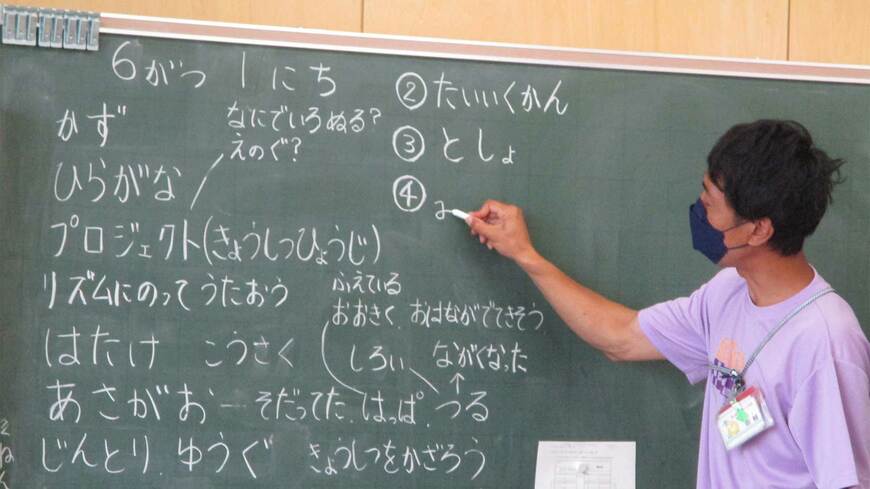 6がつ 1にち
かず
なにでいろぬる?
えのぐ?
ひらがな
プロジェクト(きょうしつひょうじ)
リズムにのってうたおう
ふえている
おおきく. おはながでてきそう
はたけ こうさく
しろい ながくなった
あさがお―そだってた. はっぱ. つる
じんとり. ゆうぐ きょうしつをかざろう
②たいいくかん
③としょ
④